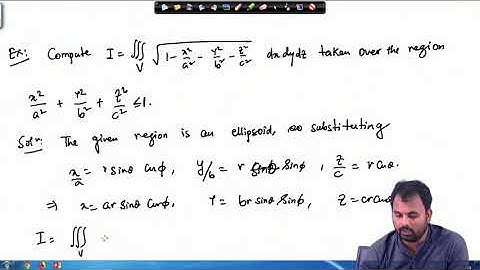 Ex: Compute I = ∭_V √(1 - x²/a² - y²/b² - z²/c²) dxdydz taken over the region
x²/a² + y²/b² + z²/c² ≤ 1.
Solⁿ: The given region is an ellipsoid, so substituting
x/a = r sinθ cosϕ, y/b = r sinθ sinϕ, z/c = r cosθ.
⇒ x = ar sinθ cosϕ, y = br sinθ sinϕ, z = cr cosθ
I = ∭_V